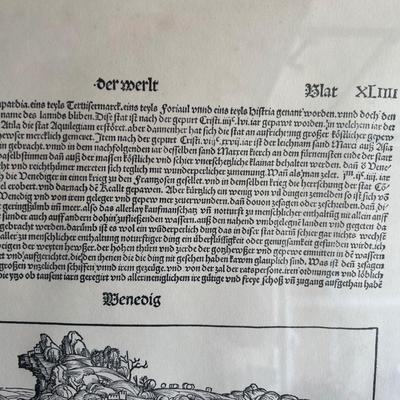 ·der werlt Blat XLIIII
pardia. eins teyls Tertisermarck. eins teyls Foriaul vnnd eins teyls Histria genant worden. vnnd doch den
name des lannds bliben. Dise stat ist nach der gepurt Cristi. iiijᶜ. lvi. iar gepawt worden. in welchem iar der
Atila die stat Aquilegiam erstöret. aber dannenher hat sich die stat an aufrichtung großer köstlicher gepew
hewser mercklich gemeret. Item nach der gepurt Cristi. iar ist der leichnam sand Marx auß Asia
in gebracht. vnnd in dem nachfolgenden iar desselben sand Marxen kirch an dem fürnemsten ende der stat
daselbstumen dañ auß der massen köstliche vnd schier vnerschenliche klainat behalten werden. das
reich vnd reichthumer mereten sich teglich mit wunderperlicher zunemung. Wañ als man zelet.
die Venediger in einem krieg zu den Franzosen gesellet. vnd in demselben krieg die herrschung der stat
erobert. vnd darnach de gepawen. Aber kürtzlich ein wenig von vil dingen zemelden so ist sich võ
Venedig vnd von irem geleger vnd gepew mer zeuerwundern. dañ dauon zesagen oder zeschreiben. dañ
geringstumb müer. also das aller lay kaufmanschatz vñ notturft zu menschlicher enthaltung nit allein auff
sunder auch auff andern dohin zufließenden wassern. auß den nahend vmbgelegen landen vnd gegenten da
gebracht werden. darumb ist es wol ein wunderperlich ding das in diser stat darinn schier gar nichts wechst
aller zu menschlicher enthaltung notturftiger ding ein überflüssigkeit oder genugsamkeit gefunden wird. ich
weigen der weytten hewser. der hohen thürn vnd zierde der gotzhewser vnd gepewe ennmitten in dē wassern
et vnd aufgerichtet. die den ihenen die die ding nit gesehen haben kawm glauplich sind. Was ist den zesagen
großen vnzelichen schiffen vnnd irem gezewge. vnd von der zal der ratspersone. iren ordnungen vnd löblich
die yzo ob tausent iarn geregirt vnd allermeniglichem ire gütige vnd freye schoß vñ zugang aufgethan habē
Venedig